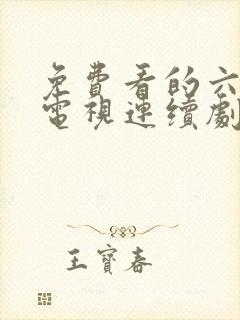 免費看的六
電視連續劇
王寶春